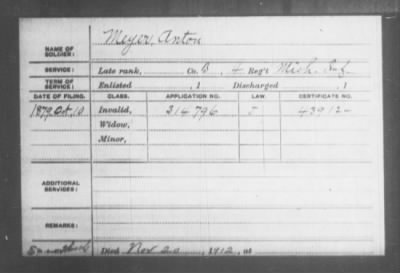 NAME OF SOLDIER: Meyer, Anton
SERVICE: Late rank, Co. B, 4 Reg't Mich. Inf
TERM OF SERVICE: Enlisted , 1 Discharged , 1
DATE OF FILING. CLASS. APPLICATION NO. LAW. CERTIFICATE NO.
1879 Oct 10 Invalid, 314796 43912-
Widow,
Minor,
ADDITIONAL SERVICES:
REMARKS:
Died Nov 20, 1912, at